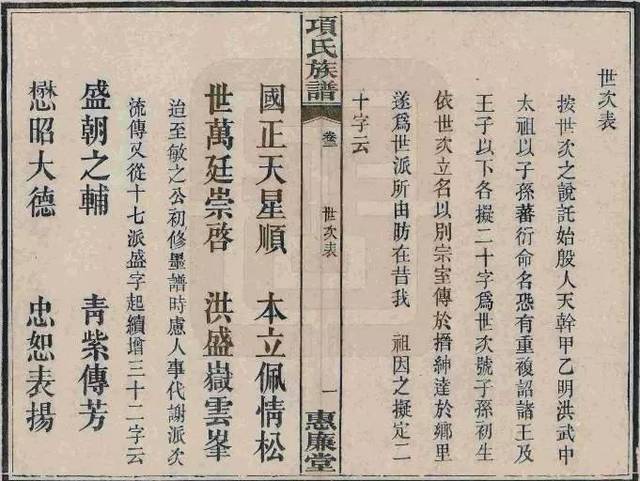 世次表
按世次之說託始殷人天幹甲乙明洪武中
太祖以子孫蕃衍命名恐有重複詔諸王及
王子以下各擬二十字爲世次號子孫初生
依世次立名以別宗室傳於搢紳達於鄉里
遂爲世派所由昉在昔我 祖因之擬定二
十字云
項氏族譜
卷二
世次表
一
惠廉堂
國正天星順 本立佩情松
世萬廷崇啓 洪盛嶽雲峯
迨至敏之公初修墨譜時慮人事代謝派次
流傳又從十七派盛字起續增三十二字云
盛朝之輔 青紫傳芳
懋昭大德 忠恕表揚